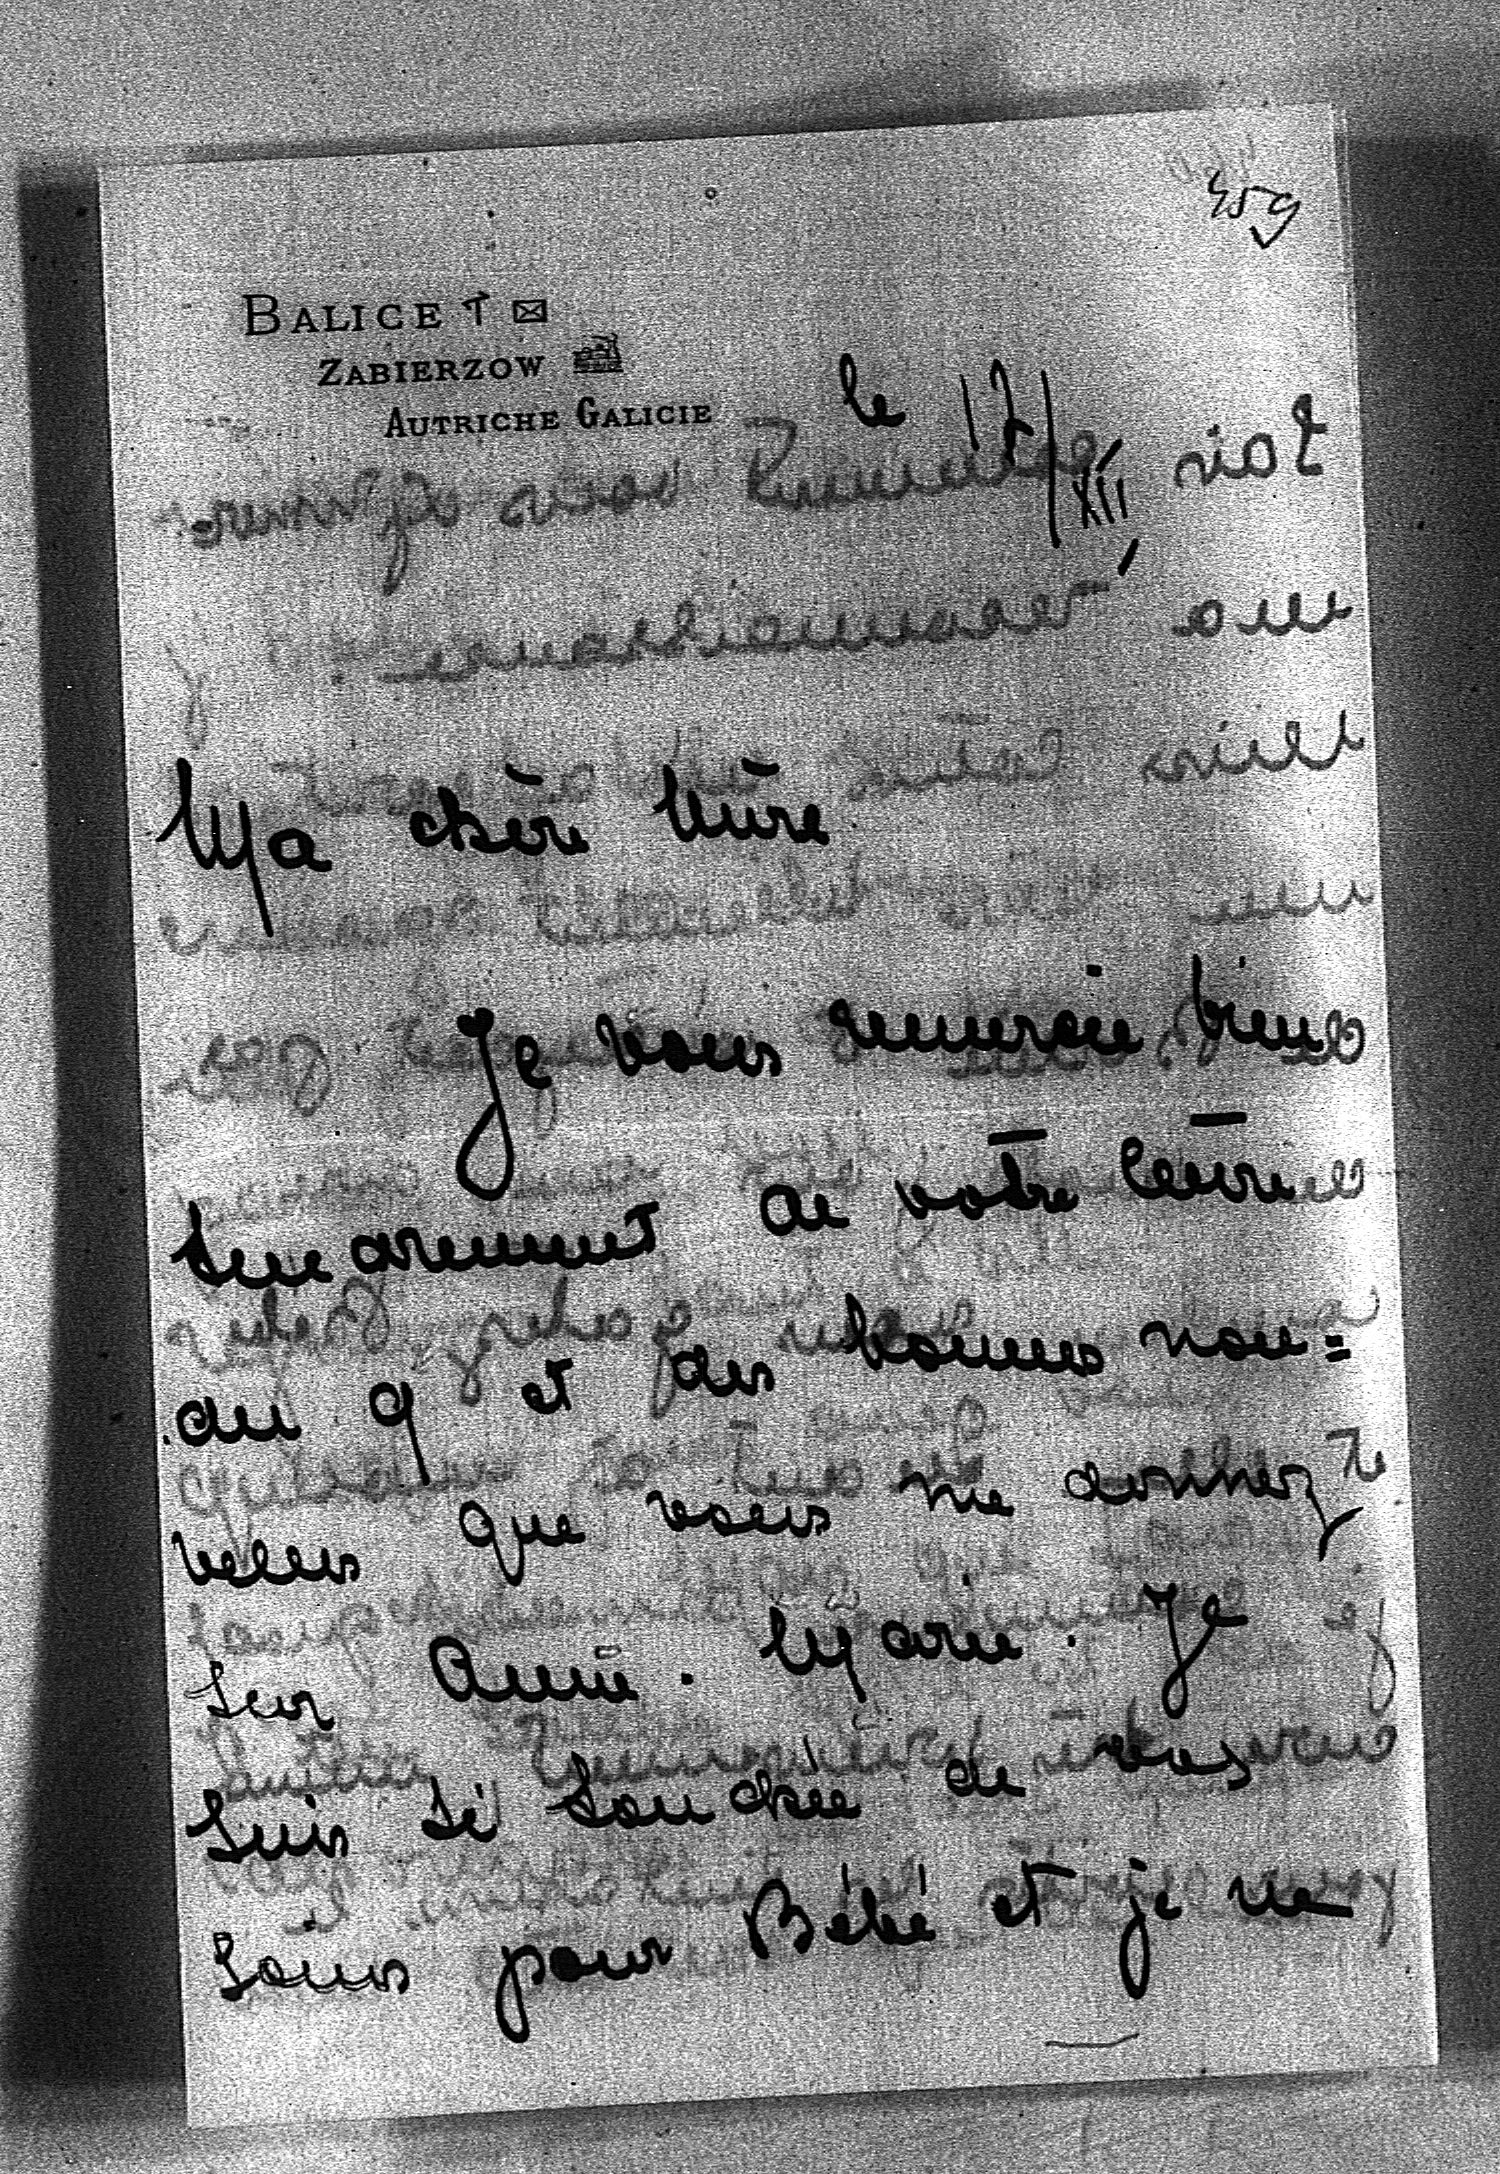 BALICE
ZABIERZOW
AUTRICHE GALICIE
le 17/XII
Ma chère Mère
Je vous remercie bien
tendrement de votre lettre
du 9 et des bonnes nou=
velles que vous me donnez
sur Anne. Marie. Je
suis si touchée de vos
soins pour Bébé et je ne